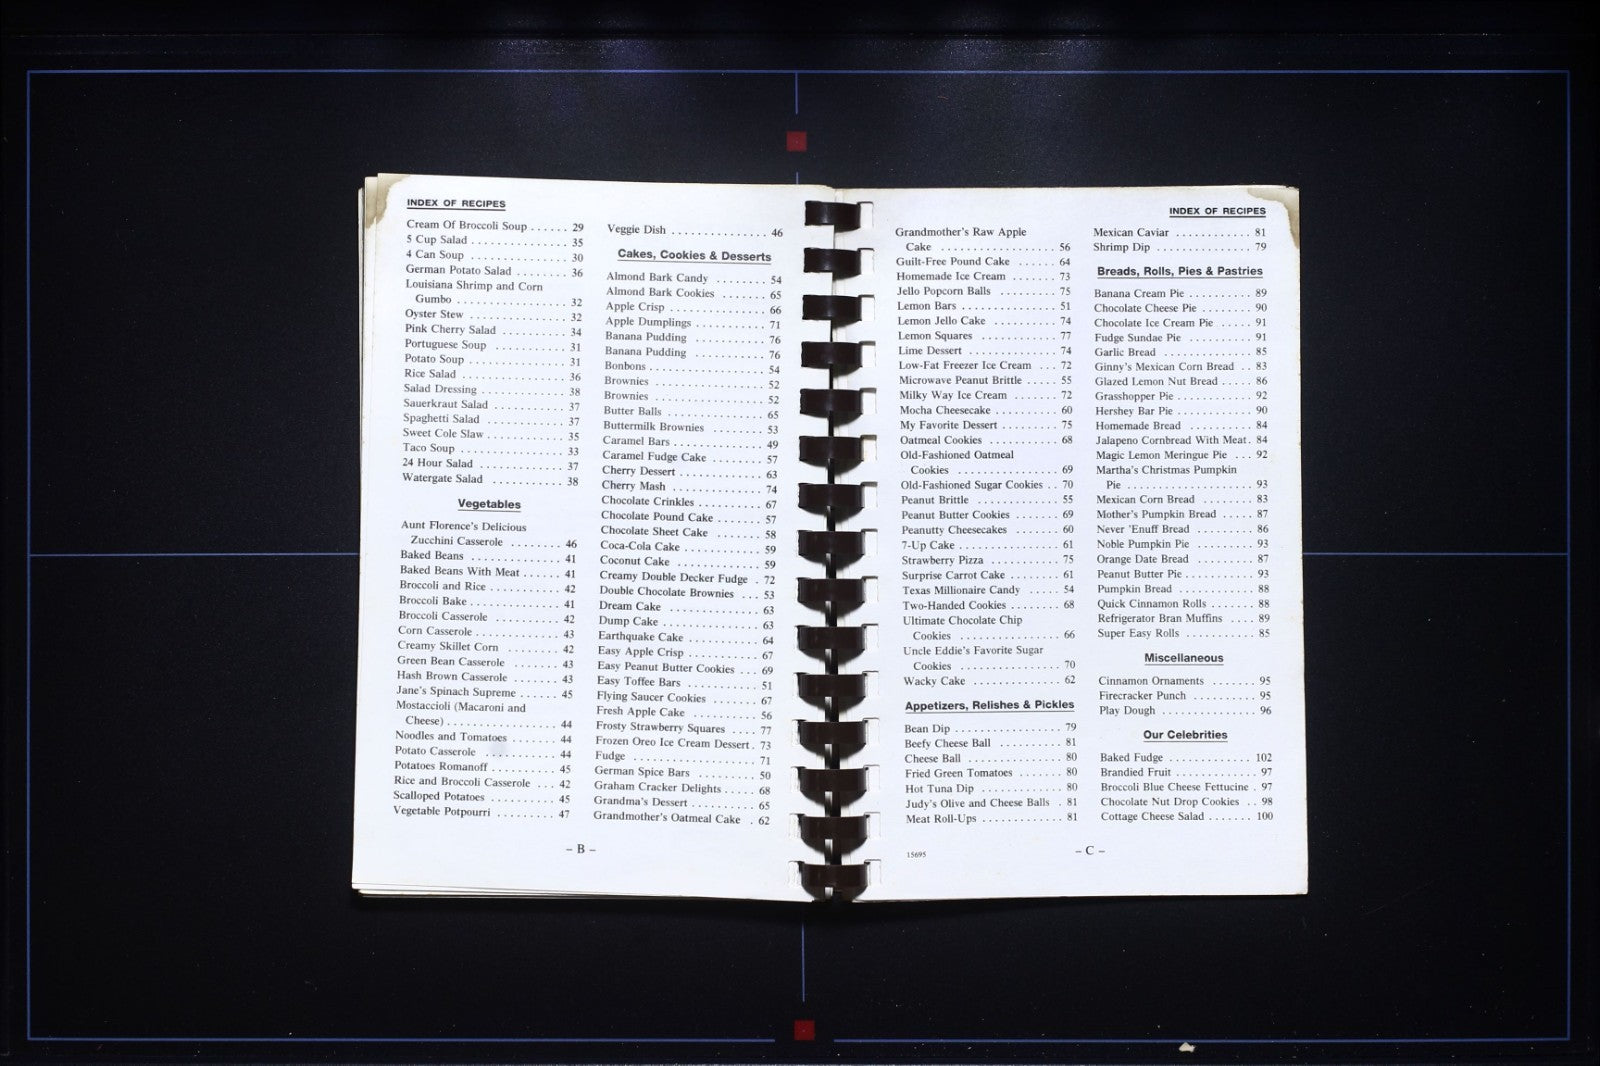 INDEX OF RECIPES
Cream Of Broccoli Soup . . . . . . 29
5 Cup Salad . . . . . . . . . . . . . . 35
4 Can Soup . . . . . . . . . . . . . . 30
German Potato Salad . . . . . . . . 36
Louisiana Shrimp and Corn
Gumbo . . . . . . . . . . . . . . . . 32
Oyster Stew . . . . . . . . . . . . . . 32
Pink Cherry Salad . . . . . . . . . . 34
Portuguese Soup . . . . . . . . . . . 31
Potato Soup . . . . . . . . . . . . . . 31
Rice Salad . . . . . . . . . . . . . . . 36
Salad Dressing . . . . . . . . . . . . 38
Sauerkraut Salad . . . . . . . . . . . 37
Spaghetti Salad . . . . . . . . . . . . 37
Sweet Cole Slaw . . . . . . . . . . . . 35
Taco Soup . . . . . . . . . . . . . . . 33
24 Hour Salad . . . . . . . . . . . . . 37
Watergate Salad . . . . . . . . . . . 38
Vegetables
Aunt Florence's Delicious
Zucchini Casserole . . . . . . . . 46
Baked Beans . . . . . . . . . . . . . . 41
Baked Beans With Meat . . . . . . 41
Broccoli and Rice . . . . . . . . . . . 42
Broccoli Bake . . . . . . . . . . . . . . 41
Broccoli Casserole . . . . . . . . . . 42
Corn Casserole . . . . . . . . . . . . . 43
Creamy Skillet Corn . . . . . . . . . 42
Green Bean Casserole . . . . . . . . 43
Hash Brown Casserole . . . . . . . . 43
Jane's Spinach Supreme . . . . . . 45
Mostaccioli (Macaroni and
Cheese) . . . . . . . . . . . . . . . . . 44
Noodles and Tomatoes . . . . . . . 44
Potato Casserole . . . . . . . . . . . 44
Potatoes Romanoff . . . . . . . . . . 45
Rice and Broccoli Casserole . . . 42
Scalloped Potatoes . . . . . . . . . . 45
Vegetable Potpourri . . . . . . . . . 47
Veggie Dish . . . . . . . . . . . . . . . 46
Cakes, Cookies & Desserts
Almond Bark Candy . . . . . . . . 54
Almond Bark Cookies . . . . . . . 65
Apple Crisp . . . . . . . . . . . . . . . 66
Apple Dumplings . . . . . . . . . . . 71
Banana Pudding . . . . . . . . . . . 76
Banana Pudding . . . . . . . . . . . 76
Bonbons . . . . . . . . . . . . . . . . . 54
Brownies . . . . . . . . . . . . . . . . . 52
Brownies . . . . . . . . . . . . . . . . . 52
Butter Balls . . . . . . . . . . . . . . . 65
Buttermilk Brownies . . . . . . . . 53
Caramel Bars . . . . . . . . . . . . . . 49
Caramel Fudge Cake . . . . . . . . 57
Cherry Dessert . . . . . . . . . . . . . 63
Cherry Mash . . . . . . . . . . . . . . 74
Chocolate Crinkles . . . . . . . . . . 67
Chocolate Pound Cake . . . . . . . 57
Chocolate Sheet Cake . . . . . . . 58
Coca-Cola Cake . . . . . . . . . . . . 59
Coconut Cake . . . . . . . . . . . . . 59
Creamy Double Decker Fudge . 72
Double Chocolate Brownies . . . 53
Dream Cake . . . . . . . . . . . . . . 63
Dump Cake . . . . . . . . . . . . . . . 63
Earthquake Cake . . . . . . . . . . . 64
Easy Apple Crisp . . . . . . . . . . . 67
Easy Peanut Butter Cookies . . . 69
Easy Toffee Bars . . . . . . . . . . . 51
Flying Saucer Cookies . . . . . . . 67
Fresh Apple Cake . . . . . . . . . . 56
Frosty Strawberry Squares . . . . 77
Frozen Oreo Ice Cream Dessert . 73
Fudge . . . . . . . . . . . . . . . . . . . 71
German Spice Bars . . . . . . . . . 50
Graham Cracker Delights . . . . . 68
Grandma's Dessert . . . . . . . . . . 65
Grandmother's Oatmeal Cake . 62
– B –
INDEX OF RECIPES
Grandmother's Raw Apple
Cake . . . . . . . . . . . . . . . . . . 56
Guilt-Free Pound Cake . . . . . . 64
Homemade Ice Cream . . . . . . . 73
Jello Popcorn Balls . . . . . . . . . 75
Lemon Bars . . . . . . . . . . . . . . . 51
Lemon Jello Cake . . . . . . . . . . 74
Lemon Squares . . . . . . . . . . . . 77
Lime Dessert . . . . . . . . . . . . . . 74
Low-Fat Freezer Ice Cream . . . 72
Microwave Peanut Brittle . . . . . 55
Milky Way Ice Cream . . . . . . . 72
Mocha Cheesecake . . . . . . . . . . 60
My Favorite Dessert . . . . . . . . . 75
Oatmeal Cookies . . . . . . . . . . . 68
Old-Fashioned Oatmeal
Cookies . . . . . . . . . . . . . . . . . 69
Old-Fashioned Sugar Cookies . . 70
Peanut Brittle . . . . . . . . . . . . . 55
Peanut Butter Cookies . . . . . . . 69
Peanutty Cheesecakes . . . . . . . . 60
7-Up Cake . . . . . . . . . . . . . . . . 61
Strawberry Pizza . . . . . . . . . . . 75
Surprise Carrot Cake . . . . . . . . 61
Texas Millionaire Candy . . . . . 54
Two-Handed Cookies . . . . . . . . 68
Ultimate Chocolate Chip
Cookies . . . . . . . . . . . . . . . . . 66
Uncle Eddie's Favorite Sugar
Cookies . . . . . . . . . . . . . . . . . 70
Wacky Cake . . . . . . . . . . . . . . 62
Appetizers, Relishes & Pickles
Bean Dip . . . . . . . . . . . . . . . . . 79
Beefy Cheese Ball . . . . . . . . . . 81
Cheese Ball . . . . . . . . . . . . . . . 80
Fried Green Tomatoes . . . . . . . 80
Hot Tuna Dip . . . . . . . . . . . . . 80
Judy's Olive and Cheese Balls . 81
Meat Roll-Ups . . . . . . . . . . . . . 81
15695
Mexican Caviar . . . . . . . . . . . . 81
Shrimp Dip . . . . . . . . . . . . . . . 79
Breads, Rolls, Pies & Pastries
Banana Cream Pie . . . . . . . . . . 89
Chocolate Cheese Pie . . . . . . . . 90
Chocolate Ice Cream Pie . . . . . 91
Fudge Sundae Pie . . . . . . . . . . 91
Garlic Bread . . . . . . . . . . . . . . 85
Ginny's Mexican Corn Bread . . 83
Glazed Lemon Nut Bread . . . . . 86
Grasshopper Pie . . . . . . . . . . . . 92
Hershey Bar Pie . . . . . . . . . . . . 90
Homemade Bread . . . . . . . . . . 84
Jalapeno Cornbread With Meat . 84
Magic Lemon Meringue Pie . . . 92
Martha's Christmas Pumpkin
Pie . . . . . . . . . . . . . . . . . . . . 93
Mexican Corn Bread . . . . . . . . 83
Mother's Pumpkin Bread . . . . . 87
Never 'Enuff Bread . . . . . . . . . 86
Noble Pumpkin Pie . . . . . . . . . 93
Orange Date Bread . . . . . . . . . 87
Peanut Butter Pie . . . . . . . . . . . 93
Pumpkin Bread . . . . . . . . . . . . 88
Quick Cinnamon Rolls . . . . . . . 88
Refrigerator Bran Muffins . . . . 89
Super Easy Rolls . . . . . . . . . . . 85
Miscellaneous
Cinnamon Ornaments . . . . . . . 95
Firecracker Punch . . . . . . . . . . 95
Play Dough . . . . . . . . . . . . . . . 96
Our Celebrities
Baked Fudge . . . . . . . . . . . . . 102
Brandied Fruit . . . . . . . . . . . . . 97
Broccoli Blue Cheese Fettucine . 97
Chocolate Nut Drop Cookies . . 98
Cottage Cheese Salad . . . . . . . 100
– C –